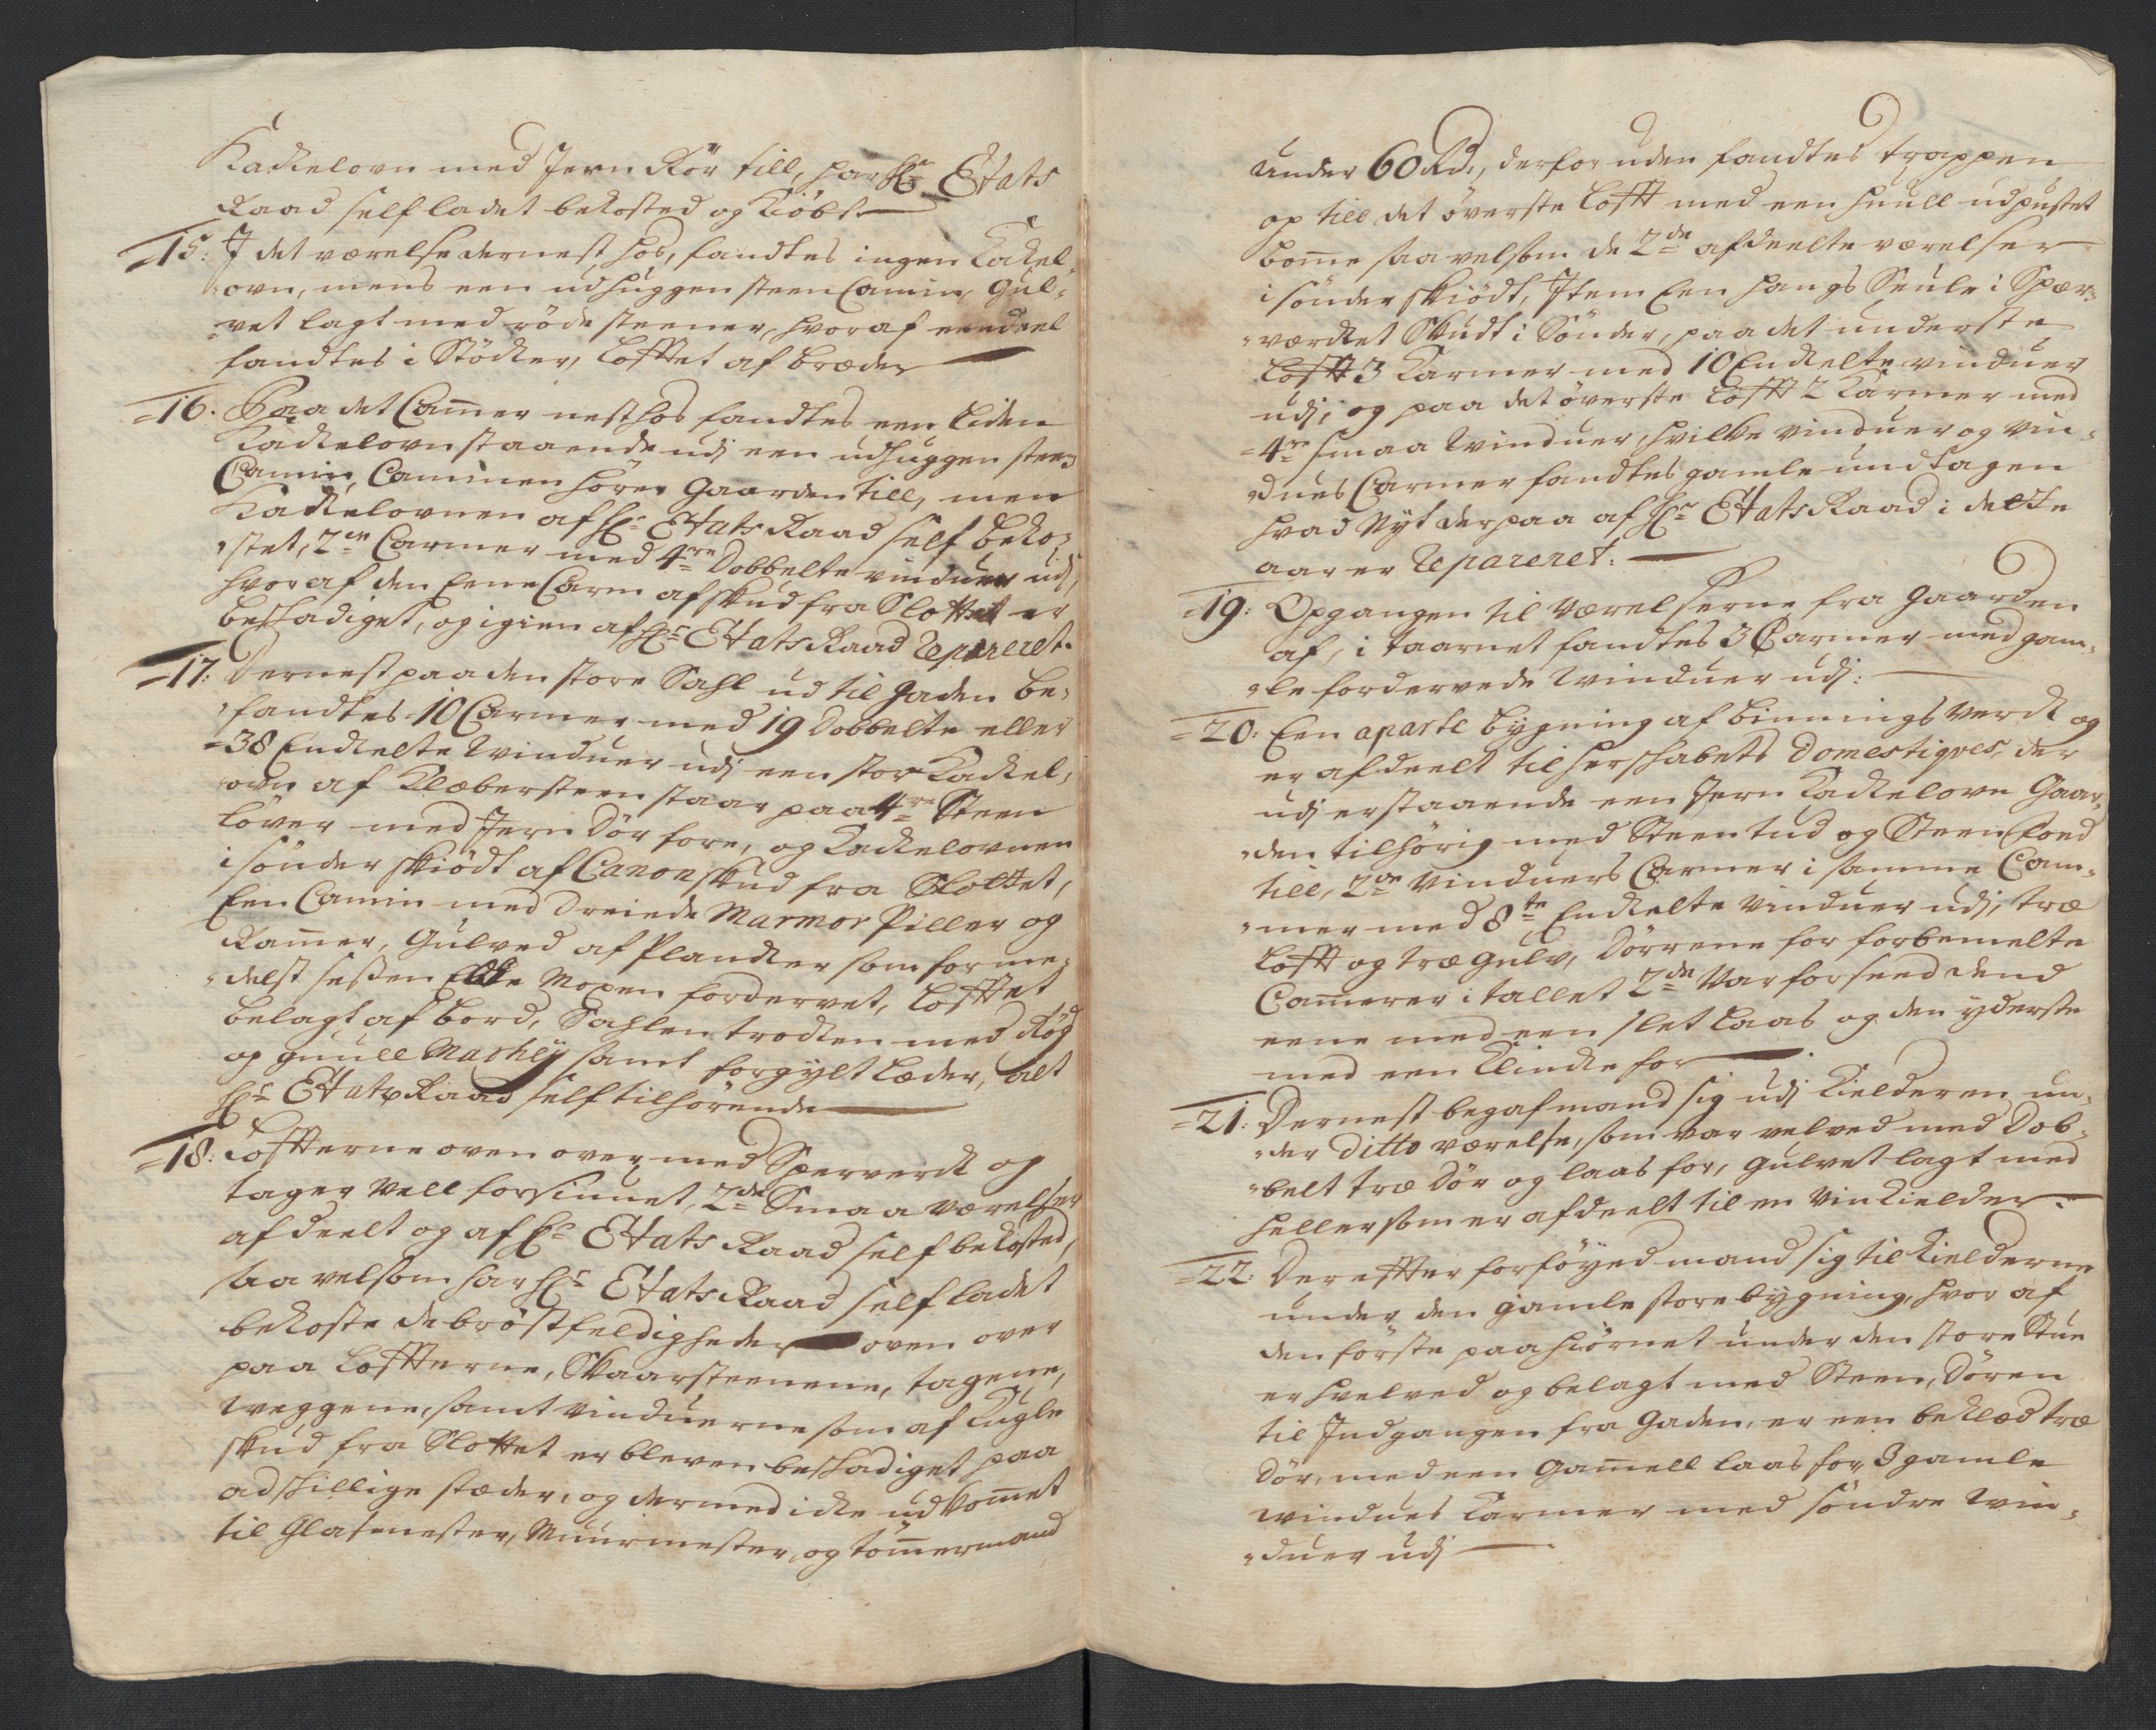 Kackelovn med Jern Rör till, har Hr. Etats
Raad self ladet bekosted og Kiöbt
15: J det værelse dernest hos, fandtes ingen Kakel-
ovn, mens een udhuggen steen Camin, Gul-
vet lagt med röde steener, hvoraf eendeel
fandtes i Stöcker, Lofftet af bræder
16. Paa det Cammer nest hos fandtes een liden
Kackelovn staaende udj een udhuggen steen
Camin, Caminen hörer Gaarden till, men
Kackelovnen af Hr. Etats Raad self beko-
stet, 2de Carmer med 4re Dobbelte vinduer udj,
hvoraf den Eene Carm af skud fra Slottet er
beskadiget, og igien af Hr. Etats Raad Repareret.
17: Dernest paa den store Sahl ud til gaden be-
fandtes 10 Carmer med 19 Dobbelte eller
38 Enckelte Winduer udj een stor Kackel-
ovn af Klæbersteen staar paa 4re Steen
Löver med Jern Dör fore, og Kackelovnen
i sönder skiödt af Canon skud fra Slottet,
Een Camin med Dreiede Marmor Piller og
Rammer, Gulved af Plancker som forme-
delst Elde Mopen fordervet, Lofftet
belagt af bord, Sahlen trocken med Röd
og guull Machey samt forgylt Læder, alt
Hr. Etats Raad self tilhörende
18: Loffterne oven over med Sperverck og
tager vell forsiunet, 2de Smaa værelser
afdeelt og af Hr. Etats Raad self bekosted,
saavelsom har Hr. Etats Raad self ladet
bekoste de bröstfeldigheder oven over
paa Loffterne, Skaarsteenene, tagene,
Weggene, samt vinduerne som af Kugle
skud fra Slottet er bleven beskadiget paa
adskillige stæder, og dermed icke udkommet
til Glatmester, Muurmester, og tömmermand
under 60 Rd., derforuden fandtes trappen
op till det överste Lofft med een huull udpustet
bomme saavelsom de 2de afdeelte værelser
i sönder skiödt, Jtem Een hangs Seule i Spær-
værcket Skudt i Sönder, paa det underste
Lofft 3 Karmer med 10 Enckelte vinduer
udj, og paa det överste Lofft 2 Karmer med
4re smaa Winduer, hvilke vinduer og vin-
dues Carmer fandtes gamle undtagen
hvad Nyt derpaa af Hr. Etats Raad i dette
aar er Repareret.
19: Opgangen til værelserne fra gaarden
af, i taarnet fandtes 3 Carmer med gam-
le fordervede Winduer udj:
20: Een aparte bygning af binnings verck og
er afdeelt til herskabets Domestiqves, der
udj er staaende een Jern Kackelovn Gaar-
den tilhörig med Steen tud og Steen foed
till, 2de vinduers Carmer i samme Cam-
mer med 8te Enckelte vinduer udj, træ
Lofft og træ gulv, Dörrene for forbemelte
Cammerer i tallet 2de var forseed dend
eene med een slet laas og den yderste
med een Klincke for
21: Dernest begaf mand sig udj Kielderen un-
der ditto værelse, som var velved med Dob-
belt træ dör og laas for, gulvet lagt med
heller som er afdeelt til en vin Kielder
22: Dereffter forföyed mand sig til Kielderne
under den gamle store bygning, hvor af
den förste paa hiörnet under den store Stue
er hvelved og belagt med Steen, Dören
til Indgangen fra Gaden, er een beklæd træ
Dör, med een Gammell laas for, 3 gamle
windues Karmer med söndre Win-
duer udj